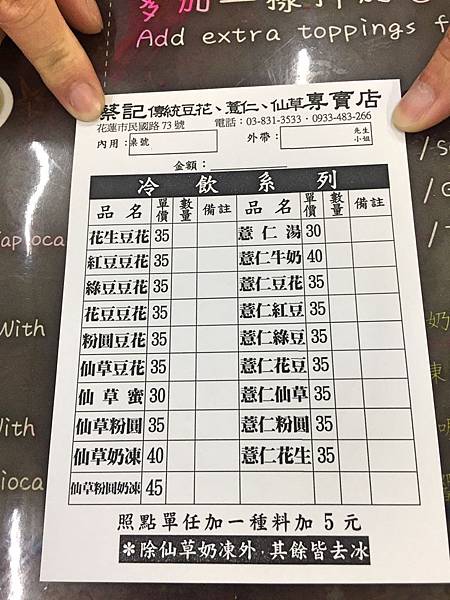 多加一樣料加
Add extra toppings f
蔡記傳統豆花、薏仁、仙草專賣店
花蓮市民國路73號 電話：03-831-3533‧0933-483-266
內用：桌號 外帶： 先生 小姐
金額：
冷飲系列
品名 單價 數量 備註 品名 單價 數量 備註
花生豆花 35 薏仁湯 30
紅豆豆花 35 薏仁牛奶 40
綠豆豆花 35 薏仁豆花 35
花豆豆花 35 薏仁紅豆 35
粉圓豆花 35 薏仁綠豆 35
仙草豆花 35 薏仁花豆 35
仙草蜜 30 薏仁仙草 35
仙草粉圓 35 薏仁粉圓 35
仙草奶凍 40 薏仁花生 35
仙草粉圓奶凍 45
照點單任加一種料加5元
＊除仙草奶凍外‧其餘皆去冰
apioca
With
With
ioca
奶
凍